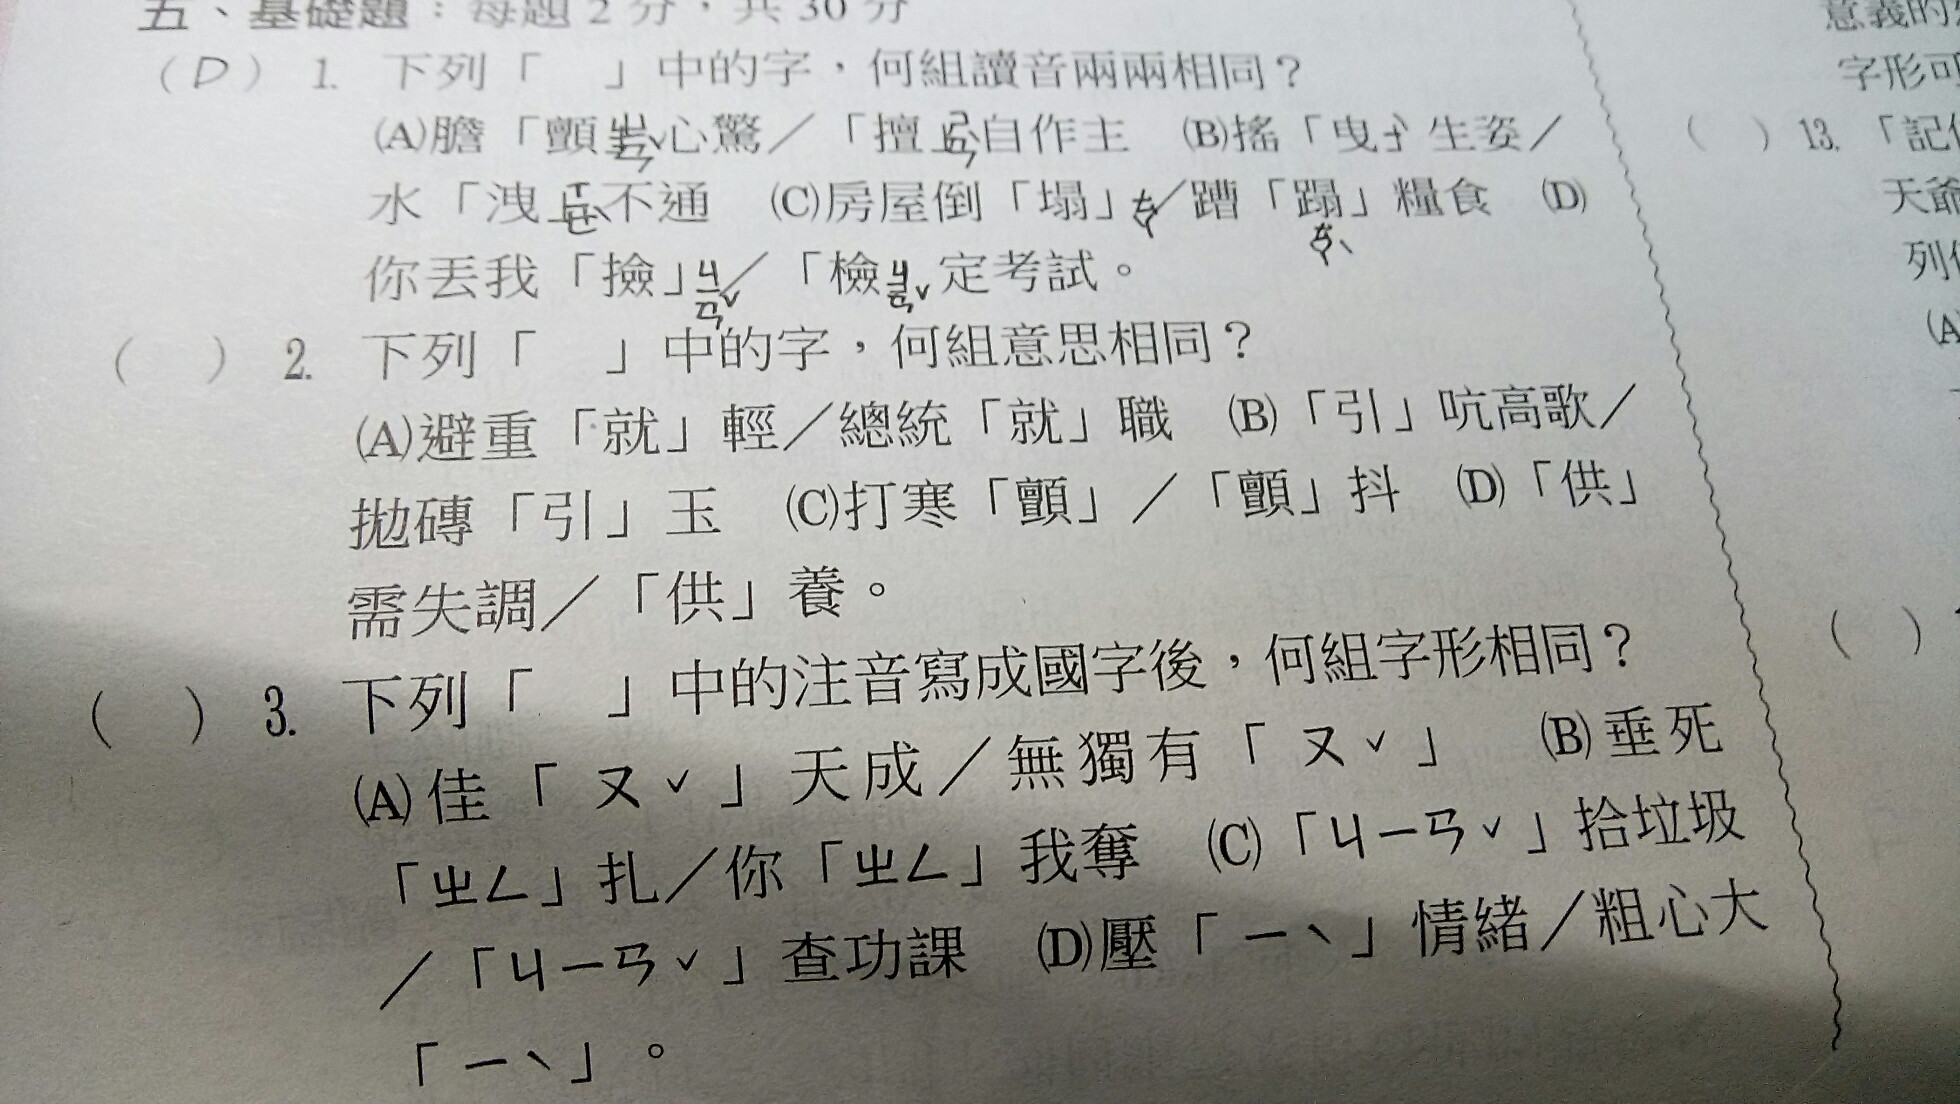 五、基礎題：每題2分，共30分
（D）1. 下列「　」中的字，何組讀音兩兩相同？
(A)膽「顫ㄓㄢˋ心驚／「擅ㄕㄢˋ自作主　(B)搖「曳ㄧˋ生姿／
水「洩ㄒㄧㄝˋ不通　(C)房屋倒「塌」ㄊㄚ／蹧「蹋」糧食　(D)
ㄊㄚˋ
你丟我「撿」ㄐㄧㄢˇ／「檢ㄐㄧㄢˇ定考試。
（　）2. 下列「　」中的字，何組意思相同？
(A)避重「就」輕／總統「就」職　(B)「引」吭高歌／
拋磚「引」玉　(C)打寒「顫」／「顫」抖　(D)「供」
需失調／「供」養。
（　）3. 下列「　」中的注音寫成國字後，何組字形相同？
(A)佳「ㄡˇ」天成／無獨有「ㄡˇ」　(B)垂死
「ㄓㄥ」扎／你「ㄓㄥ」我奪　(C)「ㄐㄧㄢˇ」拾垃圾
／「ㄐㄧㄢˇ」查功課　(D)壓「ㄧˋ」情緒／粗心大
「ㄧˋ」。
意義的
字形可
（　）13. 「記
天爺
列
(A
（　）